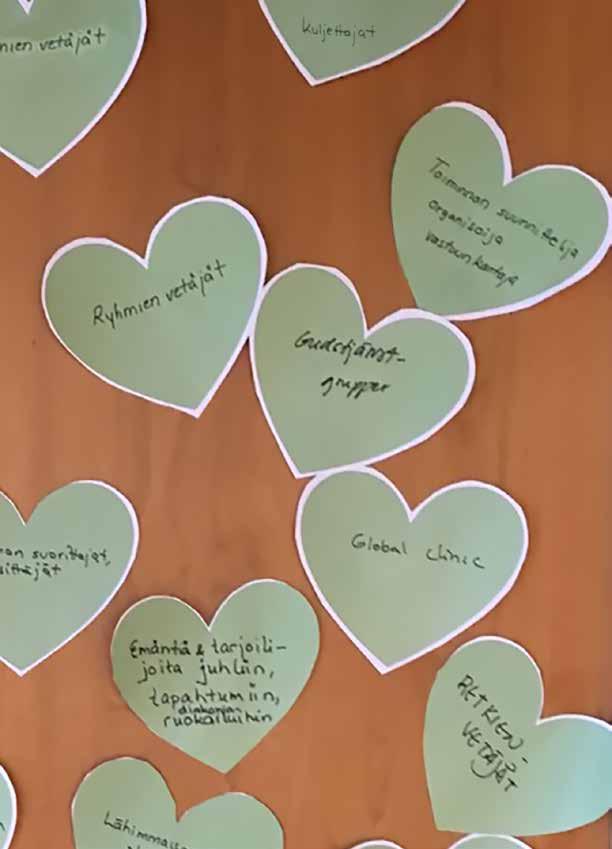 vetäjät
kuljettajat
Toiminnan suunnittelija
organisoija
vastuunkantaja
Ryhmien vetäjät
Gudstjänst-
grupper
suorittajat,
Global clinic
Emäntä & tarjoili-
joita juhliin,
tapahtumiin,
diakonian
ruokailuihin
RETKIEN-
VETÄJÄT